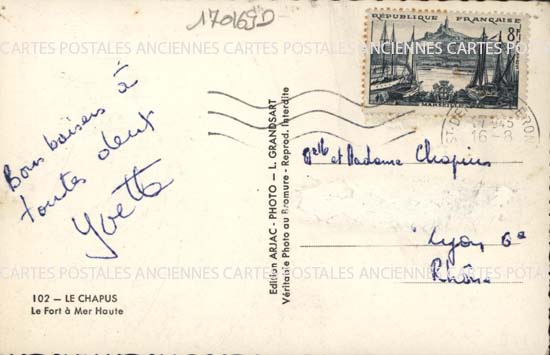 170169D
RÉPUBLIQUE FRANÇAISE
8F
MARSEILLE
17 H45
16-8
Bons baisers à
toutes deux
Yvette
Edition ARJAC-PHOTO — L. GRANDSART
Véritable Photo au Bromure - Reprod. Interdite
et Madame Chapius
Lyon 6e
Rhône
102 — LE CHAPUS
Le Fort à Mer Haute
CARTES POSTALES ANCIENNES CARTES POSTALES ANCIENNES CARTES POSTALES ANCIENNES